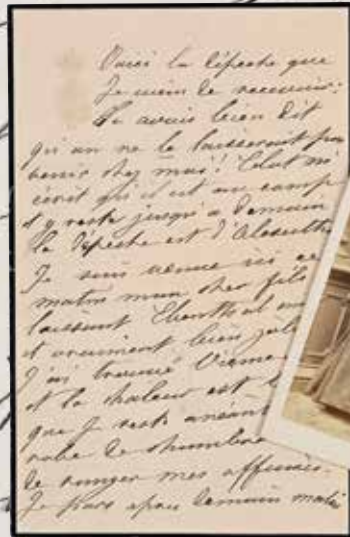 Voici la dépeche que
Je viens de recevoir:
Tu avais bien dit
qu'on ne le laisserait pas
venir chez moi! Celui ci
écrit qu'il est au camp
et y reste jusqu'a demain
la dépeche est d'
Je suis venue ici ce
matin mon cher fils
laissant
et vraiment bien
J'ai trouvé Vienne
et la chaleur est
que je reste
robe de chambre
de ranger mes affaires.
Je pars apres demain matin